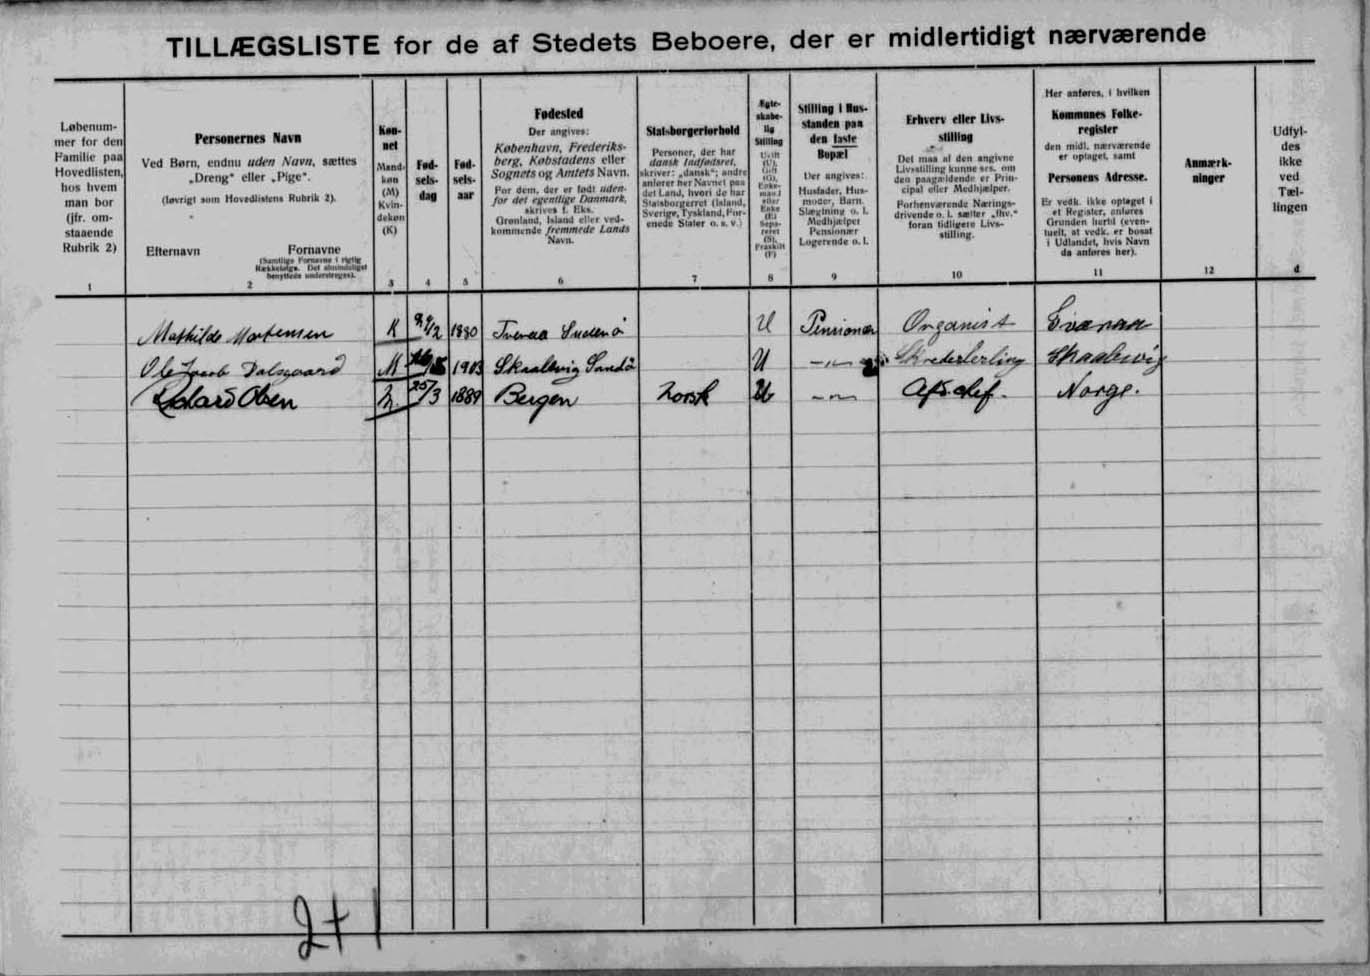 TILLÆGSLISTE for de af Stedets Beboere, der er midlertidigt nærværende
Løbenum-
mer for den
Familie paa
Hovedlisten,
hos hvem
man bor
(jfr. om-
staaende
Rubrik 2)
1
Personernes Navn
Ved Børn, endnu uden Navn, sættes
„Dreng“ eller „Pige“.
(Iøvrigt som Hovedlistens Rubrik 2).
Efternavn Fornavne
(Samtlige Fornavne i rigtig
Rækkefølge. Det almindeligst
benyttede understreges).
2
Køn-
net
Mand-
køn
(M)
Kvin-
dekøn
(K)
3
Fød-
sels-
dag
4
Fød-
sels-
aar
5
Fødested
Der angives:
København, Frederiks-
berg, Købstadens eller
Sognets og Amtets Navn.
For dem, der er født uden-
for det egentlige Danmark,
skrives f. Eks.
Grønland, Island eller ved-
kommende fremmede Lands
Navn.
6
Statsborgerforhold
Personer, der har
dansk Indfødsret,
skriver: „dansk“; andre
anfører her Navnet paa
det Land, hvori de har
Statsborgerret (Island,
Sverige, Tyskland, For-
enede Stater o. s. v.)
7
Ægte-
skabe-
lig
Stilling
Ugift
(U),
Gift
(G),
Enke-
mand
eller
Enke
(E)
Sepa-
reret
(S),
Fraskilt
(F)
8
Stilling i Hus-
standen paa
den faste
Bopæl
Der angives:
Husfader, Hus-
moder, Barn,
Slægtning o. l.
Medhjælper
Pensionær
Logerende o. l.
9
Erhverv eller Livs-
stilling
Det maa af den angivne
Livsstilling kunne ses, om
den paagældende er Prin-
cipal eller Medhjælper.
Forhenværende Nærings-
drivende o. l. sætter „fhv.“
foran tidligere Livs-
stilling.
10
Her anføres, i hvilken
Kommunes Folke-
register
den midl. nærværende
er optaget, samt
Personens Adresse.
Er vedk. ikke optaget i
et Register, anføres
Grunden hertil (even-
tuelt, at vedk. er bosat
i Udlandet, hvis Navn
da anføres her).
11
Anmærk-
ninger
12
Udfyl-
des
ikke
ved
Tæl-
lingen
d
Mathilde Mortensen K 1880 Tveraa Suderø U Pensionær Organist Tveraa
Ole Jacob Dalsgaard M 1903 Skaalevig Sandø U -"- Skrederlerling Skaalevig
Olsen M 25/3 1889 Bergen Norsk U -"- Afd.chef. Norge.
2+1